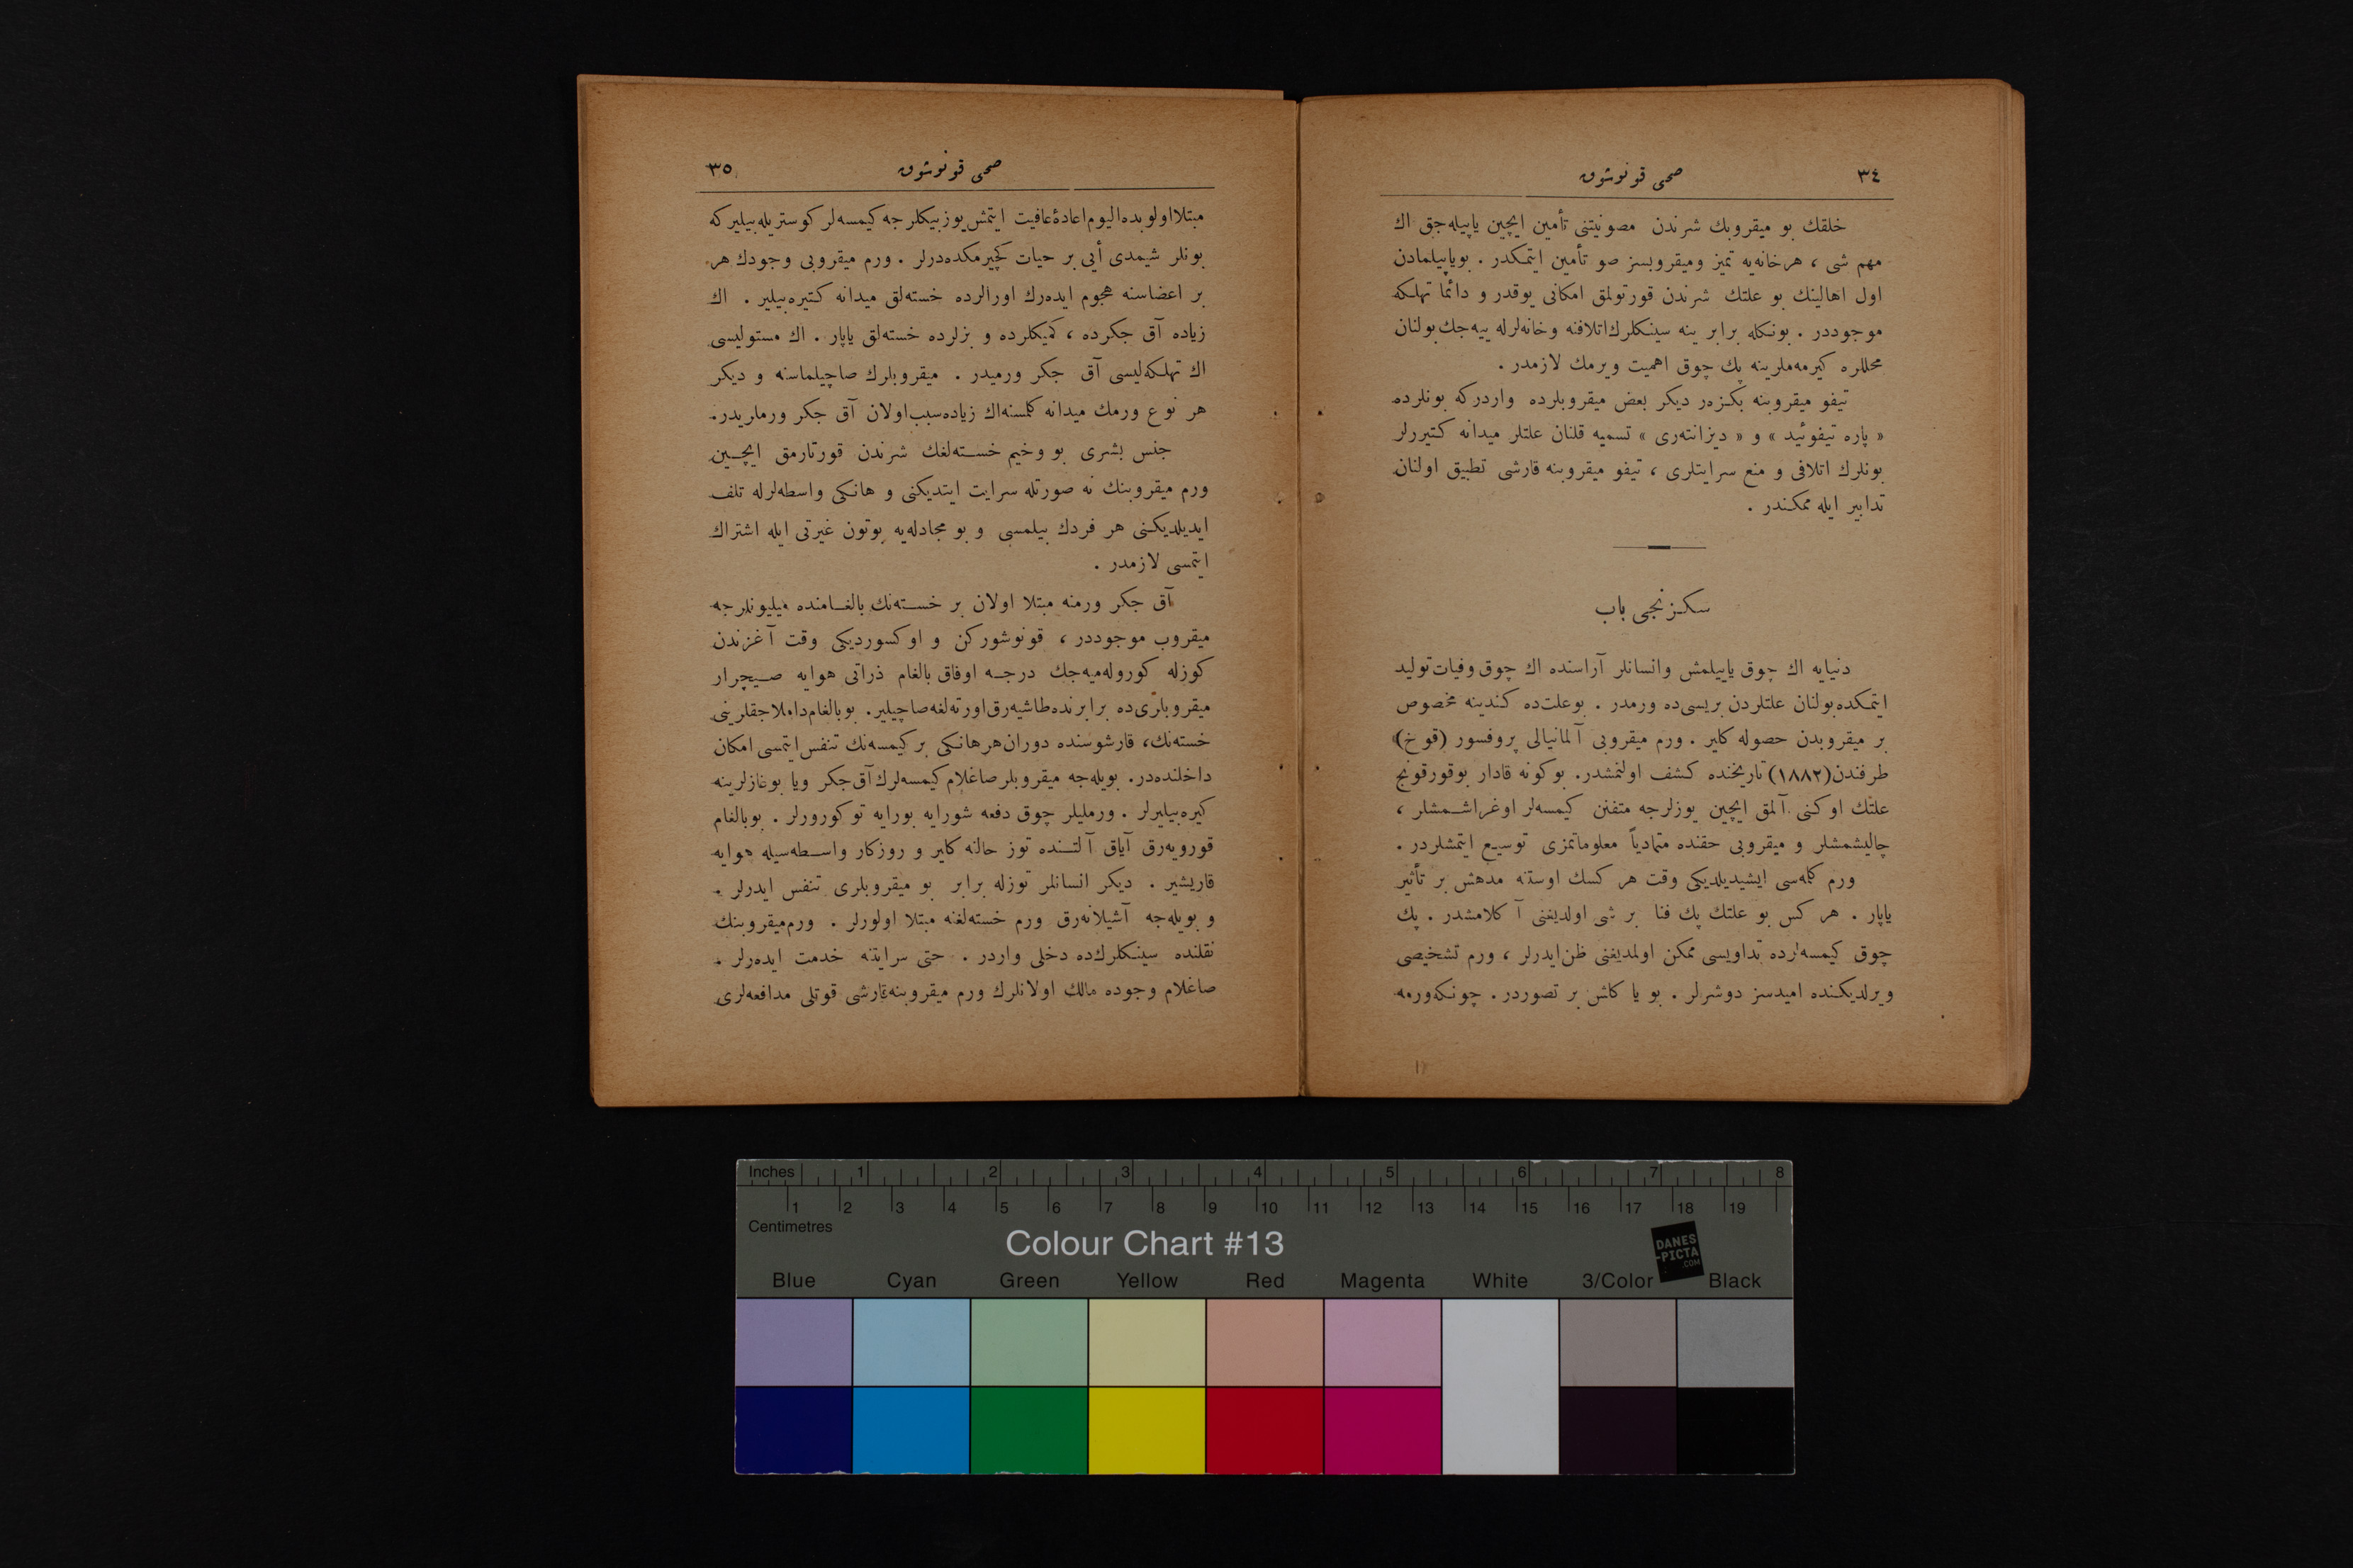 ٣٤
صحی قونوشوق
خلقك بو میقروبك شرندن مصونیتنی تأمین ایچین یاپیله جق اك
مهم شی ، هرخانه‌یه تمیز ومیقروبسز صو تأمین ایتمكدر . بویاپیلمادن
اول اهالینك بو علتك شرندن قورتولمق امكانی یوقدر و دائما تهلكه
موجوددر . بونكله برابر ینه سینكلرك اتلافنه وخانه‌لرله ییه‌جك بولنان
محللره كیرمه‌ملرینه پك چوق اهمیت ویرمك لازمدر .
تیفو میقروبنه بكزه‌ر دیكر بعض میقروبلرده واردركه بونلرده
« پاره تیفوئید » و « دیزانته‌ری » تسمیه قلنان علتلر میدانه كتیررلر
بونلرك اتلافی و منع سرایتلری ، تیفو میقروبنه قارشی تطبیق اولنان
تدابیر ایله ممكندر .
سكزنجی باب
دنیایه اك چوق یاییلمش وانسانلر آراسنده اك چوق وفیات تولید
ایتمكده بولنان علتلردن بریسی‌ده ورمدر . بوعلت‌ده كندینه مخصوص
بر میقروبدن حصوله كلیر . ورم میقروبی آلمانیالی پروفسور (قوخ)
طرفندن (١٨٨٢) تاریخنده كشف اولنمشدر. بوكونه قادار بوقورقونج
علتك اوكنی آلمق ایچین یوزلرجه متفنن كیمسه‌لر اوغراشمشلر ،
چالیشمشلر و میقروبی حقنده متمادیاً معلوماتمزی توسیع ایتمشلردر .
ورم كله‌سی ایشیدیلدیكی وقت هر كسك اوستنه مدهش بر تأثیر
یاپار . هر كس بو علتك پك فنا بر شی اولدیغنی آ كلامشدر . پك
چوق كیمسه‌لرده تداویسی ممكن اولمدیغنی ظن ایدرلر ، ورم تشخیصی
ویرلدیكنده امیدسز دوشرلر . بو یا كلش بر تصوردر . چونكه ورمه
صحی قونوشوق
٣٥
مبتلا اولوبده الیوم اعادهٔ عافیت ایتمش یوز بیكلرجه كیمسه‌لر كوستریله‌بیلیركه
بونلر شیمدی أیی بر حیات كچیرمكده‌درلر . ورم میقروبی وجودك هر
بر اعضاسنه هجوم ایده‌رك اورالرده خسته‌لق میدانه كتیره‌بیلیر . اك
زیاده آق جكرده ، كمیكلرده و بزلرده خسته‌لق یاپار . اك مستولیسی
اك تهلكه‌لیسی آق جكر ورمیدر . میقروبلرك صاچیلماسنه و دیكر
هر نوع ورمك میدانه كلمسنه اك زیاده سبب اولان آق جكر ورملریدر.
جنس بشری بو وخیم خسته‌لغك شرندن قورتارمق ایچین
ورم میقروبنك نه صورتله سرایت ایتدیكنی و هانكی واسطه‌لرله تلف
ایدیلدیكنی هر فردك بیلمسی و بو مجادله‌یه بوتون غیرتی ایله اشتراك
ایتمسی لازمدر .
آق جكر ورمنه مبتلا اولان بر خسته‌نك بالغامنده میلیونلرجه
میقروب موجوددر ، قونوشوركن و اوكسوردیكی وقت آغزندن
كوزله كوروله‌میه‌جك درجه اوفاق بالغام ذراتی هوایه صیچرار
میقروبلری‌ده برابرنده طاشیه‌رق اورته‌لغه صاچیلیر. بوبالغام داملاجقلرینی
خسته‌نك، قارشوسنده دوران هرهانكی بر كیمسه‌نك تنفس ایتمسی امكان
داخلنده‌در. بویله‌جه میقروبلر صاغلام كیمسه‌لرك آق جكر ویا بوغازلرینه
كیره‌بیلیرلر . ورملیلر چوق دفعه شورایه بورایه توكورورلر . بوبالغام
قورویه‌رق آیاق آلتنده توز حالنه كلیر و روزكار واسطه‌سیله هوایه
قاریشیر . دیكر انسانلر توزله برابر بو میقروبلری تنفس ایدرلر .
و بویله‌جه آشیلانه‌رق ورم خسته‌لغنه مبتلا اولورلر . ورم میقروبنك
نقلنده سینكلرك‌ده دخلی واردر . حتی سرایتنه خدمت ایده‌رلر .
صاغلام وجوده مالك اولانلرك ورم میقروبنه قارشی قوتلی مدافعه‌لری
Inches 1 2 3 4 5 6 7 8
1 2 3 4 5 6 7 8 9 10 11 12 13 14 15 16 17 18 19
Centimetres
Colour Chart #13
DANES
-PICTA
.COM
Blue Cyan Green Yellow Red Magenta White 3/Color Black